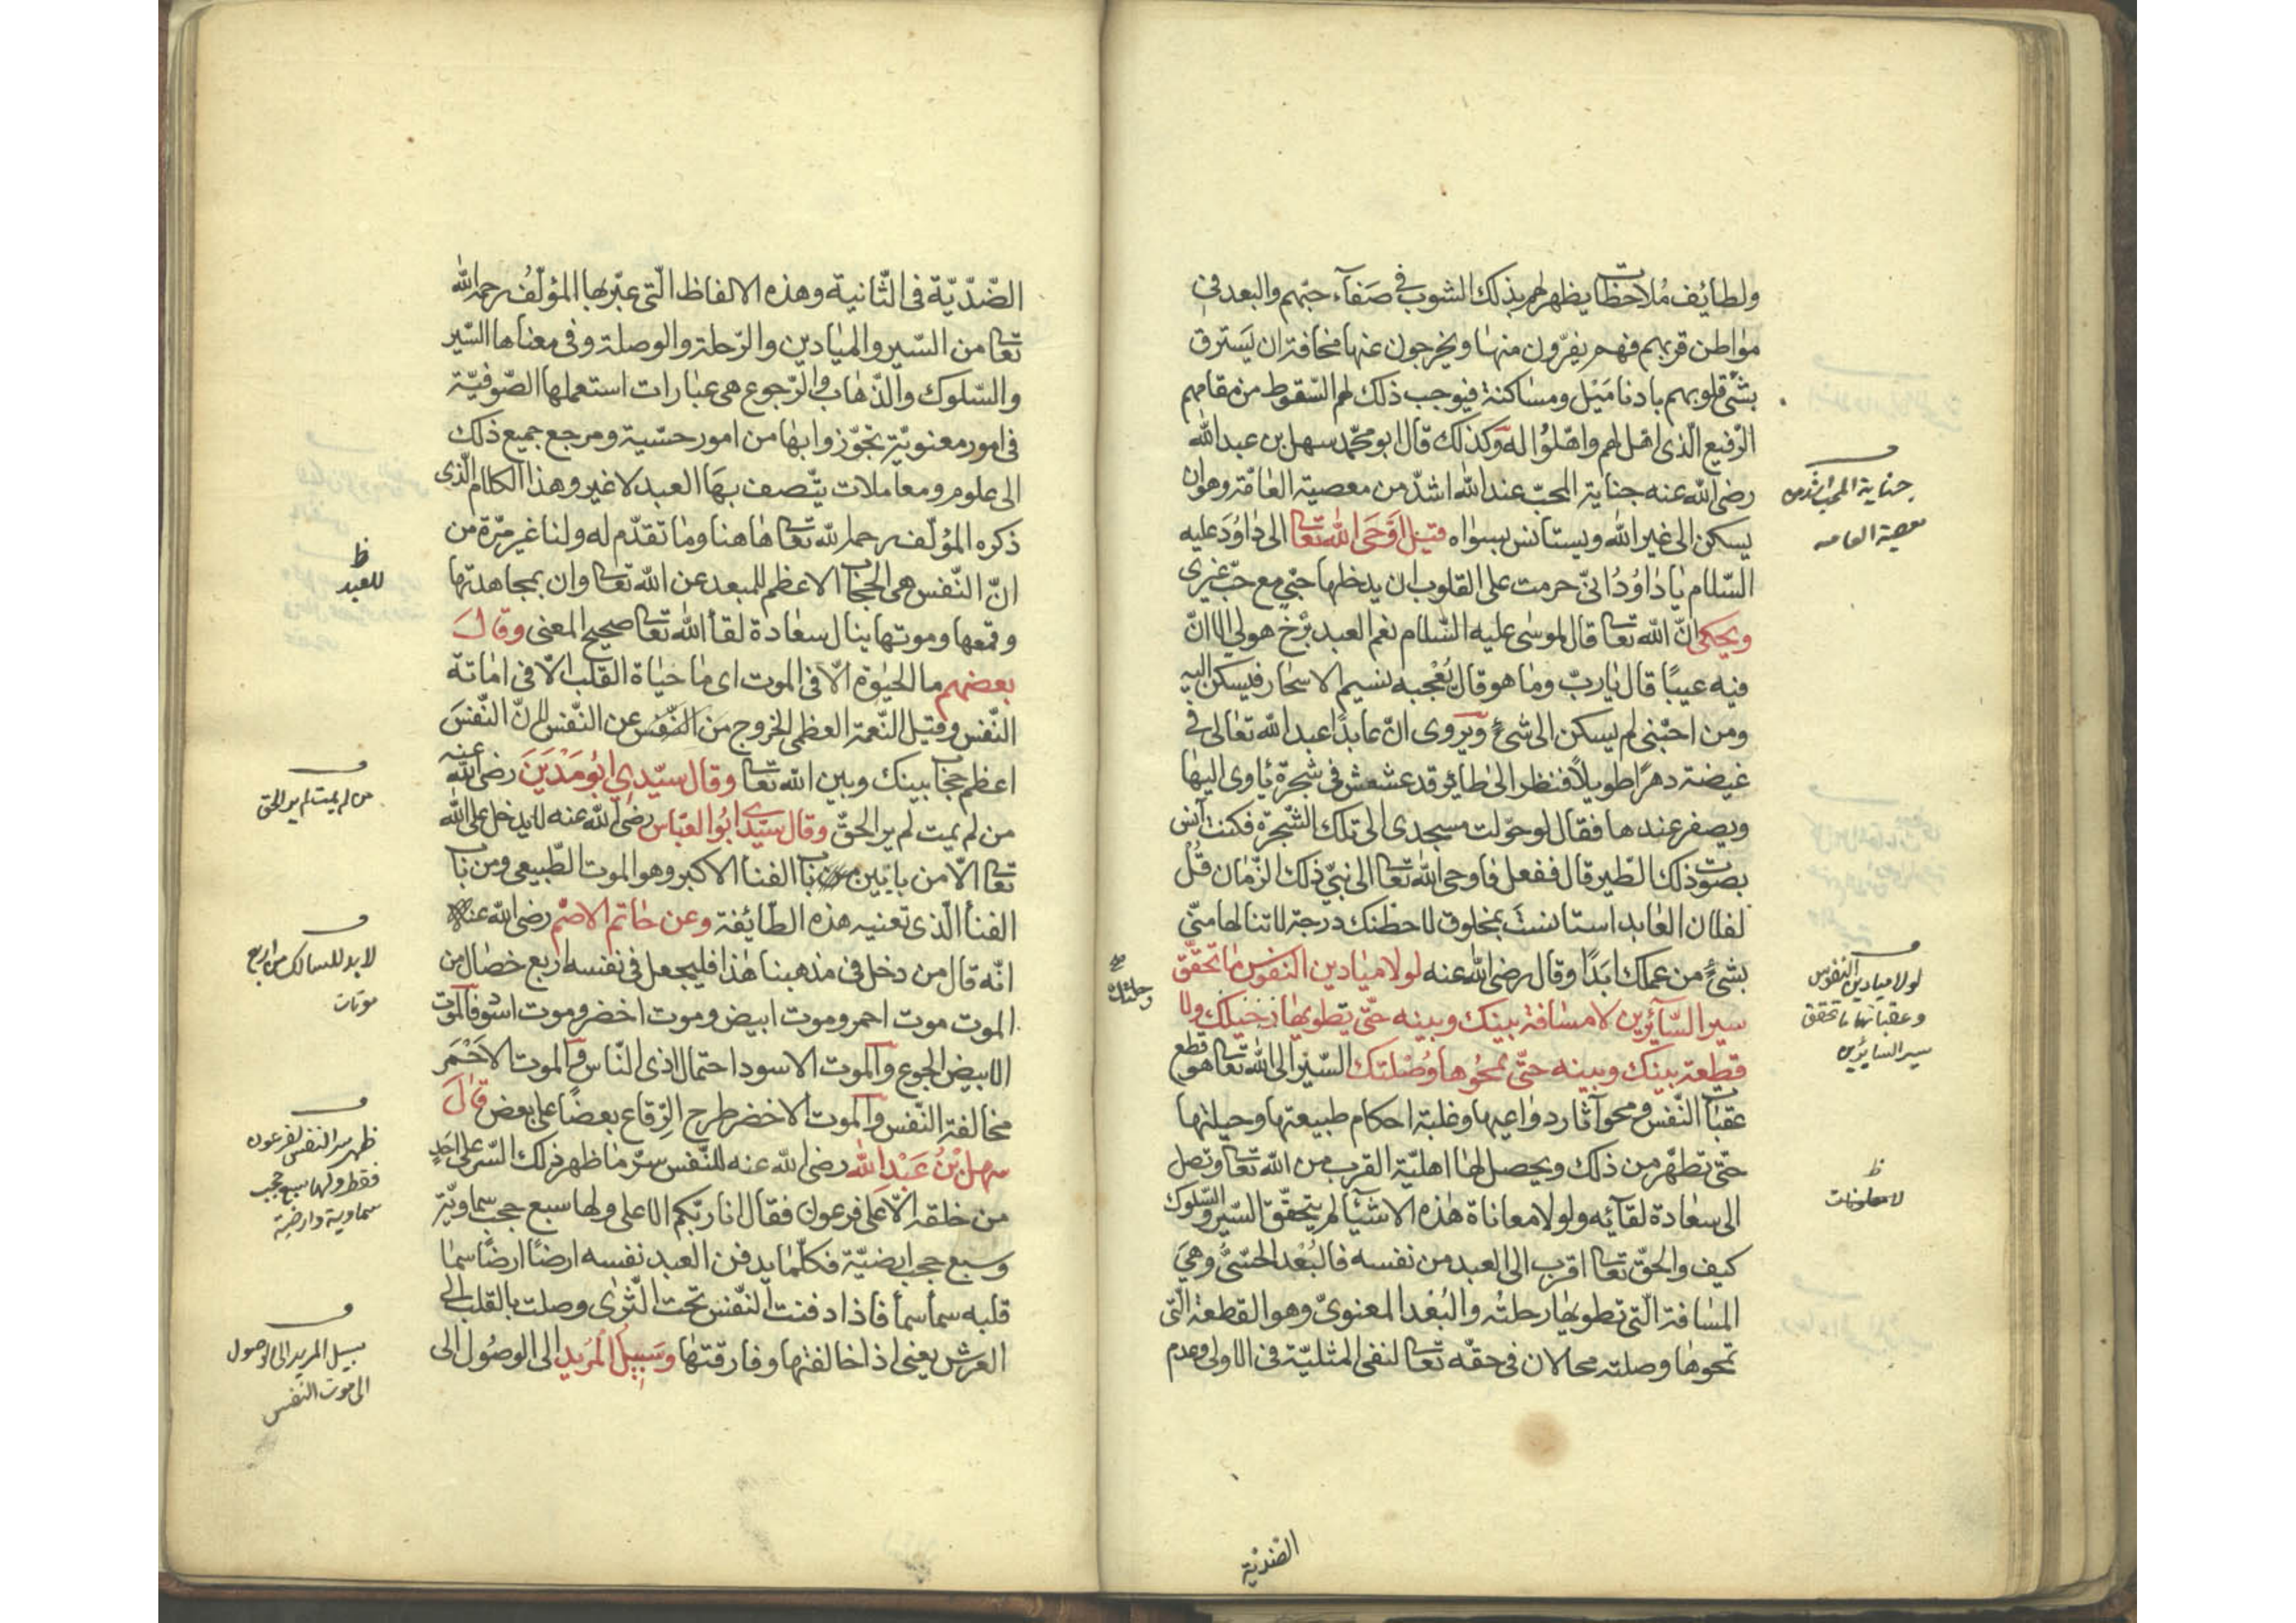 ولطايف ملاحظات يظهر لهم بذلك الشوب في صفآء حبّهم والبعد في
مواطن قربهم فهم يفرّون منها ويخرجون عنها مخافة ان يسترق
بشئ قلوبهم بادنا ميل ومساكنة فيوجب ذلك لهم السّقوط من مقامهم
الرّفيع الّذى اهّل لهم واهّلوا له وكذلك قال ابو محمّد سهل بن عبد الله
رضى الله عنه جناية المحبّ عند الله اشدّ من معصية العامّة وهو ان
يسكن الى غير الله ويستانس بسواه قيل اوحى الله تعا الى داود عليه
السّلام يا داود انّى حرمت على القلوب ان يدخلها حبّى مع حبّ غيرى
ويحكى انّ الله تعا قال لموسى عليه السّلام نعم العبد برخ هو لى الا انّ
فيه عيبًا قال يا ربّ وما هو قال يعجبه نسيم الاسحار فيسكن اليه
ومن احبّنى لم يسكن الى شئ ويروى انّ عابدًا عبد الله تعالى فى
غيضة دهرًا طويلاً فنظر الى طائر قد عشعش فى شجرة ياوى اليها
ويصفر عندها فقال لو حوّلت مسجدى الى تلك الشّجرة فكنت آنس
بصوت ذلك الطّير قال ففعل فاوحى الله تعا الى نبىّ ذلك الزّمان قل
لفلان العابد استانست بمخلوق لاحطنك درجة لا تنالها منّى
بشئ من عملك ابدًا وقال رضى الله عنه لولا ميادين النفوس ما تحقّق
سير السّآئرين لا مسافة بينك وبينه حتّى تطويها رحلتك ولا
قطعة بينك وبينه حتّى تمحوها وصلتك السّير الى الله تعا هو قطع
عقبات النّفس ومحو آثار دواعيها وغلبة احكام طبيعتها وجبلتها
حتّى تطهّر من ذلك ويحصل لها اهليّة القرب من الله تعا وتصل
الى سعادة لقآئه ولولا معاناة هذه الاشيآ لم يتحقّق السّير والسّلوك
كيف والحقّ تعا اقرب الى العبد من نفسه فالبعد الحسّىّ وهى
المسافة الّتى تطويها رحلته والبعد المعنوىّ وهو القطعة الّتى
تمحوها وصلته محالان فى حقّه تعا لنفى المثليّة فى الاولى وعدم
جناية المحب اشد من
معصية العامه
لولا ميادين النفوس
وعقباتها ما تحقق
سير السايرين
ظ
رحلتك
الضدّية
الضّدّيّة فى الثّانية وهذه الالفاظ الّتى عبّر بها المؤلّف رحمه الله
تعا من السّير والميادين والرّحلة والوصلة وفى معناها السّير
والسّلوك والذّهاب والرّجوع هى عبارات استعملها الصّوفيّة
فى امور معنويّة تجوّزوا بها من امور حسّية ومرجع جميع ذلك
الى علوم ومعاملات يتّصف بها العبد لا غير وهذا الكلام الّذى
ذكره المؤلّف رحمه الله تعا هاهنا وما تقدّم له ولنا غير مرّة من
انّ النّفس هى الحجاب الاعظم للمبعد عن الله تعا وان بمجاهدتها
وقمعها وموتها ينال سعادة لقآ الله تعا صحيح المعنى وقال
بعضهم ما الحيوة الّا فى الموت اى ما حياة القلب الّا فى اماتة
النّفس وقيل النّعمة العظمى الخروج من النّفس عن النّفس لانّ النّفس
اعظم حجاب بينك وبين الله تعا وقال سيّدى ابو مدين رضى الله عنه
من لم يمت لم ير الحقّ وقال سيّدى ابو العبّاس رضى الله عنه لا يدخل على الله
تعا الّا من بابين باب الفنا الاكبر وهو الموت الطّبيعى ومن باب
الفنا الّذى تعنيه هذه الطّائفة وعن حاتم الاصم رضى الله عنه
انّه قال من دخل فى مذهبنا هذا فليجعل فى نفسه اربع خصال من
الموت موت احمر وموت ابيض وموت اخضر وموت اسود فالموت
الابيض الجوع والموت الاسود احتمال اذى النّاس والموت الاحمر
مخالفة النّفس والموت الاخضر طرح الرّقاع بعضًا على بعض قال
سهل بن عبد الله رضى الله عنه للنّفس سرّ ما ظهر ذلك السّر على احد
من خلقه الّا على فرعون فقال انا ربّكم الاعلى ولها سبع حجب سماويّة
وسبع حجب ارضيّة فكلّما يدفن العبد نفسه ارضًا ارضًا سما
قلبه سمآ سمآ فاذا دفنت النّفس تحت الثّرى وصلت بالقلب الى
العرش يعنى اذا خالفتها وفارقتها وسبيل المريد الى الوصول الى
ظ
للعبد
من لم يمت لم ير الحق
لابد للسالك من اربع
موتات
ظهر سر النفس لفرعون
فقط ولها سبع حجب
سماوية وارضية
سبيل المريد الى الوصول
الى موت النفس